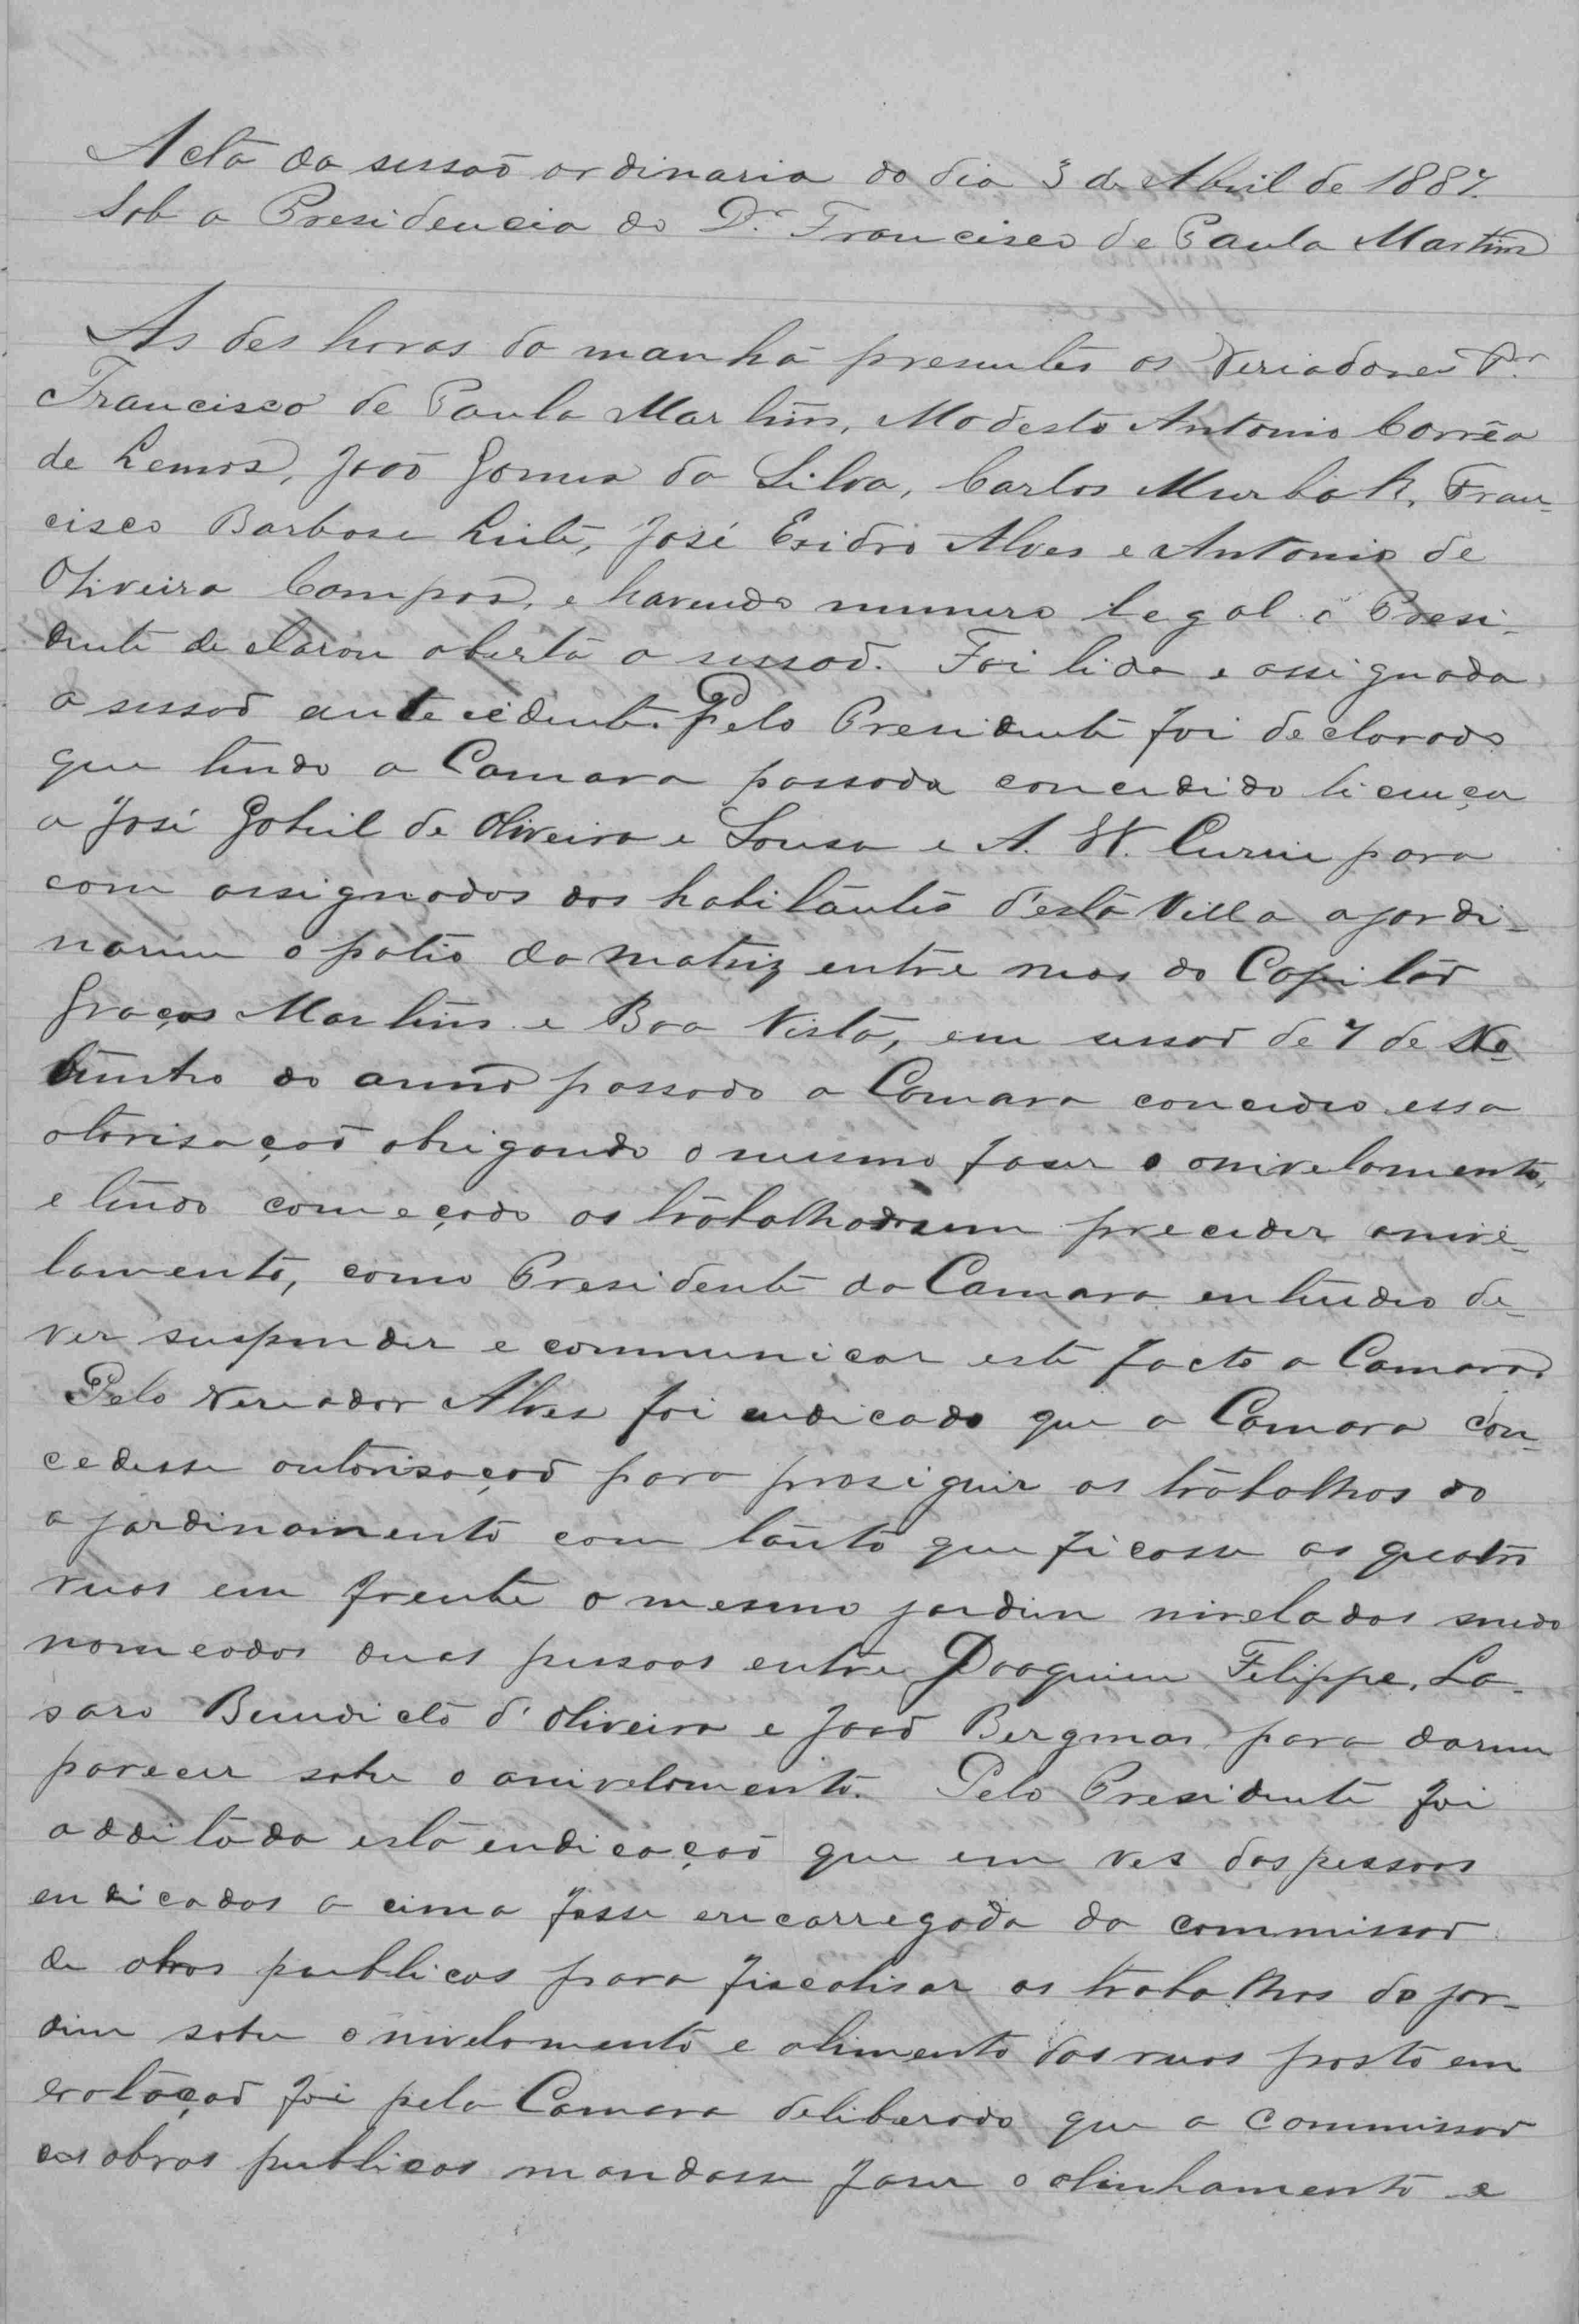 Acta da sessaõ ordinaria do dia 3 de Abril de 1887.
Sob a Presidencia do Dr. Francisco de Paula Martins
As des horas da manhã presentes os Veriadores Dr.
Francisco de Paula Martins, Modesto Antonio Corrêa
de Lemos, Joaõ Gomes da Silva, Carlos Murbak, Fran-
cisco Barbosa Leite, José Exidro Alves e Antonio de
Oliveira Campos, e havendo numero legal o Presi-
dente declarou aberta a sessaõ. Foi lida e assignada
a sessaõ antecedente. Pelo Presidente foi declarado
que tendo a Camara passada concedido licença
a José de Oliveira e Sousa e A. W. Currie para
com assignados dos habitantes d'esta Villa ajardi-
narem o patio da matriz entre ruas do Capitaõ
Graças Martins e Boa Vista, em sessaõ de 7 de No
do anno passado a Camara concedeo essa
otorisaçaõ obrigando o mesmo faser o anivelamento,
e tendo começado os trabalhos sem preceder anive-
lamento, como Presidente da Camara entendeo de-
ver suspender e communicar este facto a Camara
Pelo Vereador Alves foi endicado que a Camara con-
cedesse autorisaçaõ para proseguir os trabalhos do
ajardinamento com tanto que ficasse as quatro
ruas em frente o mesmo jardim niveladas sendo
nomeados duas pessoas entre Joaquim Filippe, La-
saro Benedicto d'Oliveira e Joaõ Bergmas para darem
parecer sobre o anivelamento. Pelo Presidente foi
additada esta endicaçaõ que em ves das pessoas
endicadas a cima fosse encarregada da commissaõ
de obras publicas para fiscalisar os trabalhos do jar-
dim sobre o nivelamento e alimento das ruas posto em
votaçaõ foi pela Camara deliberado que a commissaõ
obras publicas mandasse faser o alinhamento e